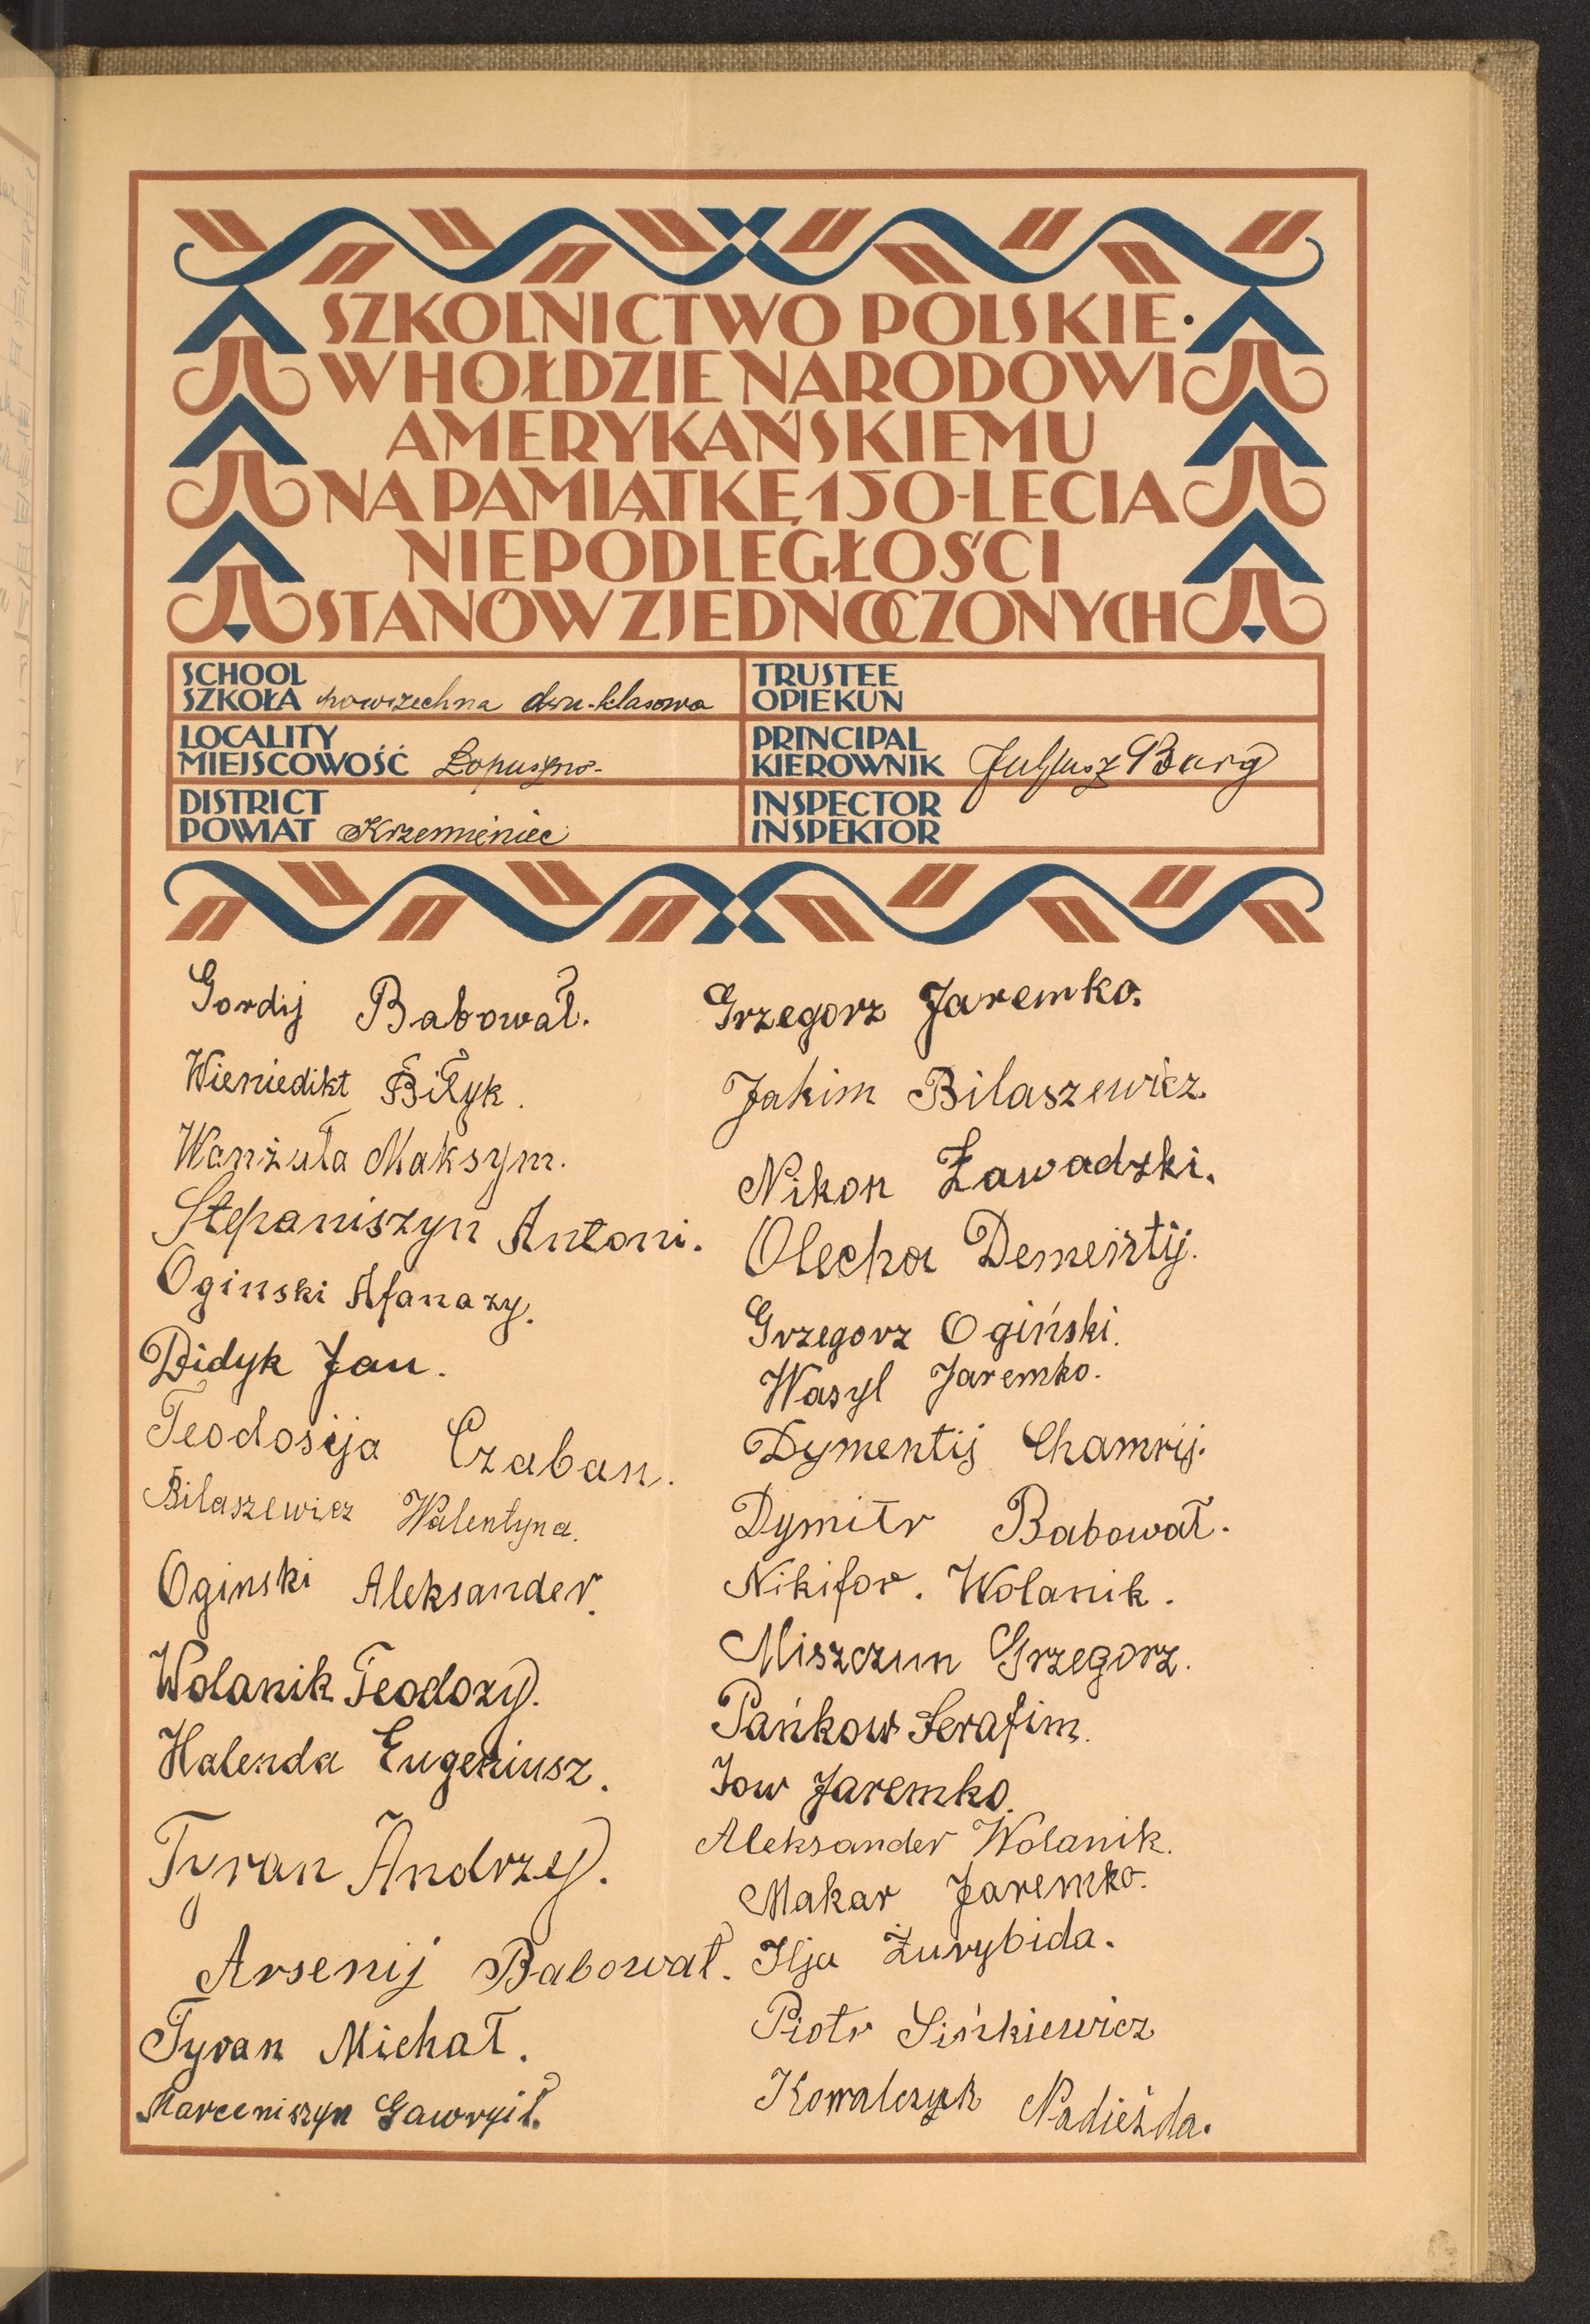 SZKOLNICTWO POLSKIE
W HOŁDZIE NARODOWI
AMERYKAŃSKIEMU
NA PAMIĄTKĘ 150-LECIA
NIEPODLEGŁOŚCI
STANÓW ZJEDNOCZONYCH
SCHOOL
SZKOŁA powszechna dwu-klasowa
TRUSTEE
OPIEKUN
LOCALITY
MIEJSCOWOŚĆ Łopuszno-
PRINCIPAL
KIEROWNIK Juljusz Burg
DISTRICT
POWIAT Krzemieniec
INSPECTOR
INSPEKTOR
Gordij Babował.
Wieniedikt Biłyk.
Wanżuła Maksym.
Stepaniszyn Antoni.
Oginski Afanazy.
Didyk Jan.
Teodosija Czaban.
Bilaszewicz Walentyna.
Oginski Aleksander.
Wolanik Teodozy.
Halenda Eugeniusz.
Tyran Andrzej.
Arsenij Babował.
Tyran Michał.
Marceniszyn Gawrył.
Grzegorz Jaremko.
Jakim Bilaszewicz.
Nikon Zawadzki.
Olecha Dementij.
Grzegorz Ogiński.
Wasyl Jaremko.
Dymentij Chamrij.
Dymitr Babował.
Nikifor. Wolanik.
Miszczun Grzegorz.
Pańkow Serafim.
Jow Jaremko.
Aleksander Wolanik.
Makar Jaremko.
Ilja Żurybida.
Piotr Sińkiewicz
Kowalczyk Nadieżda.